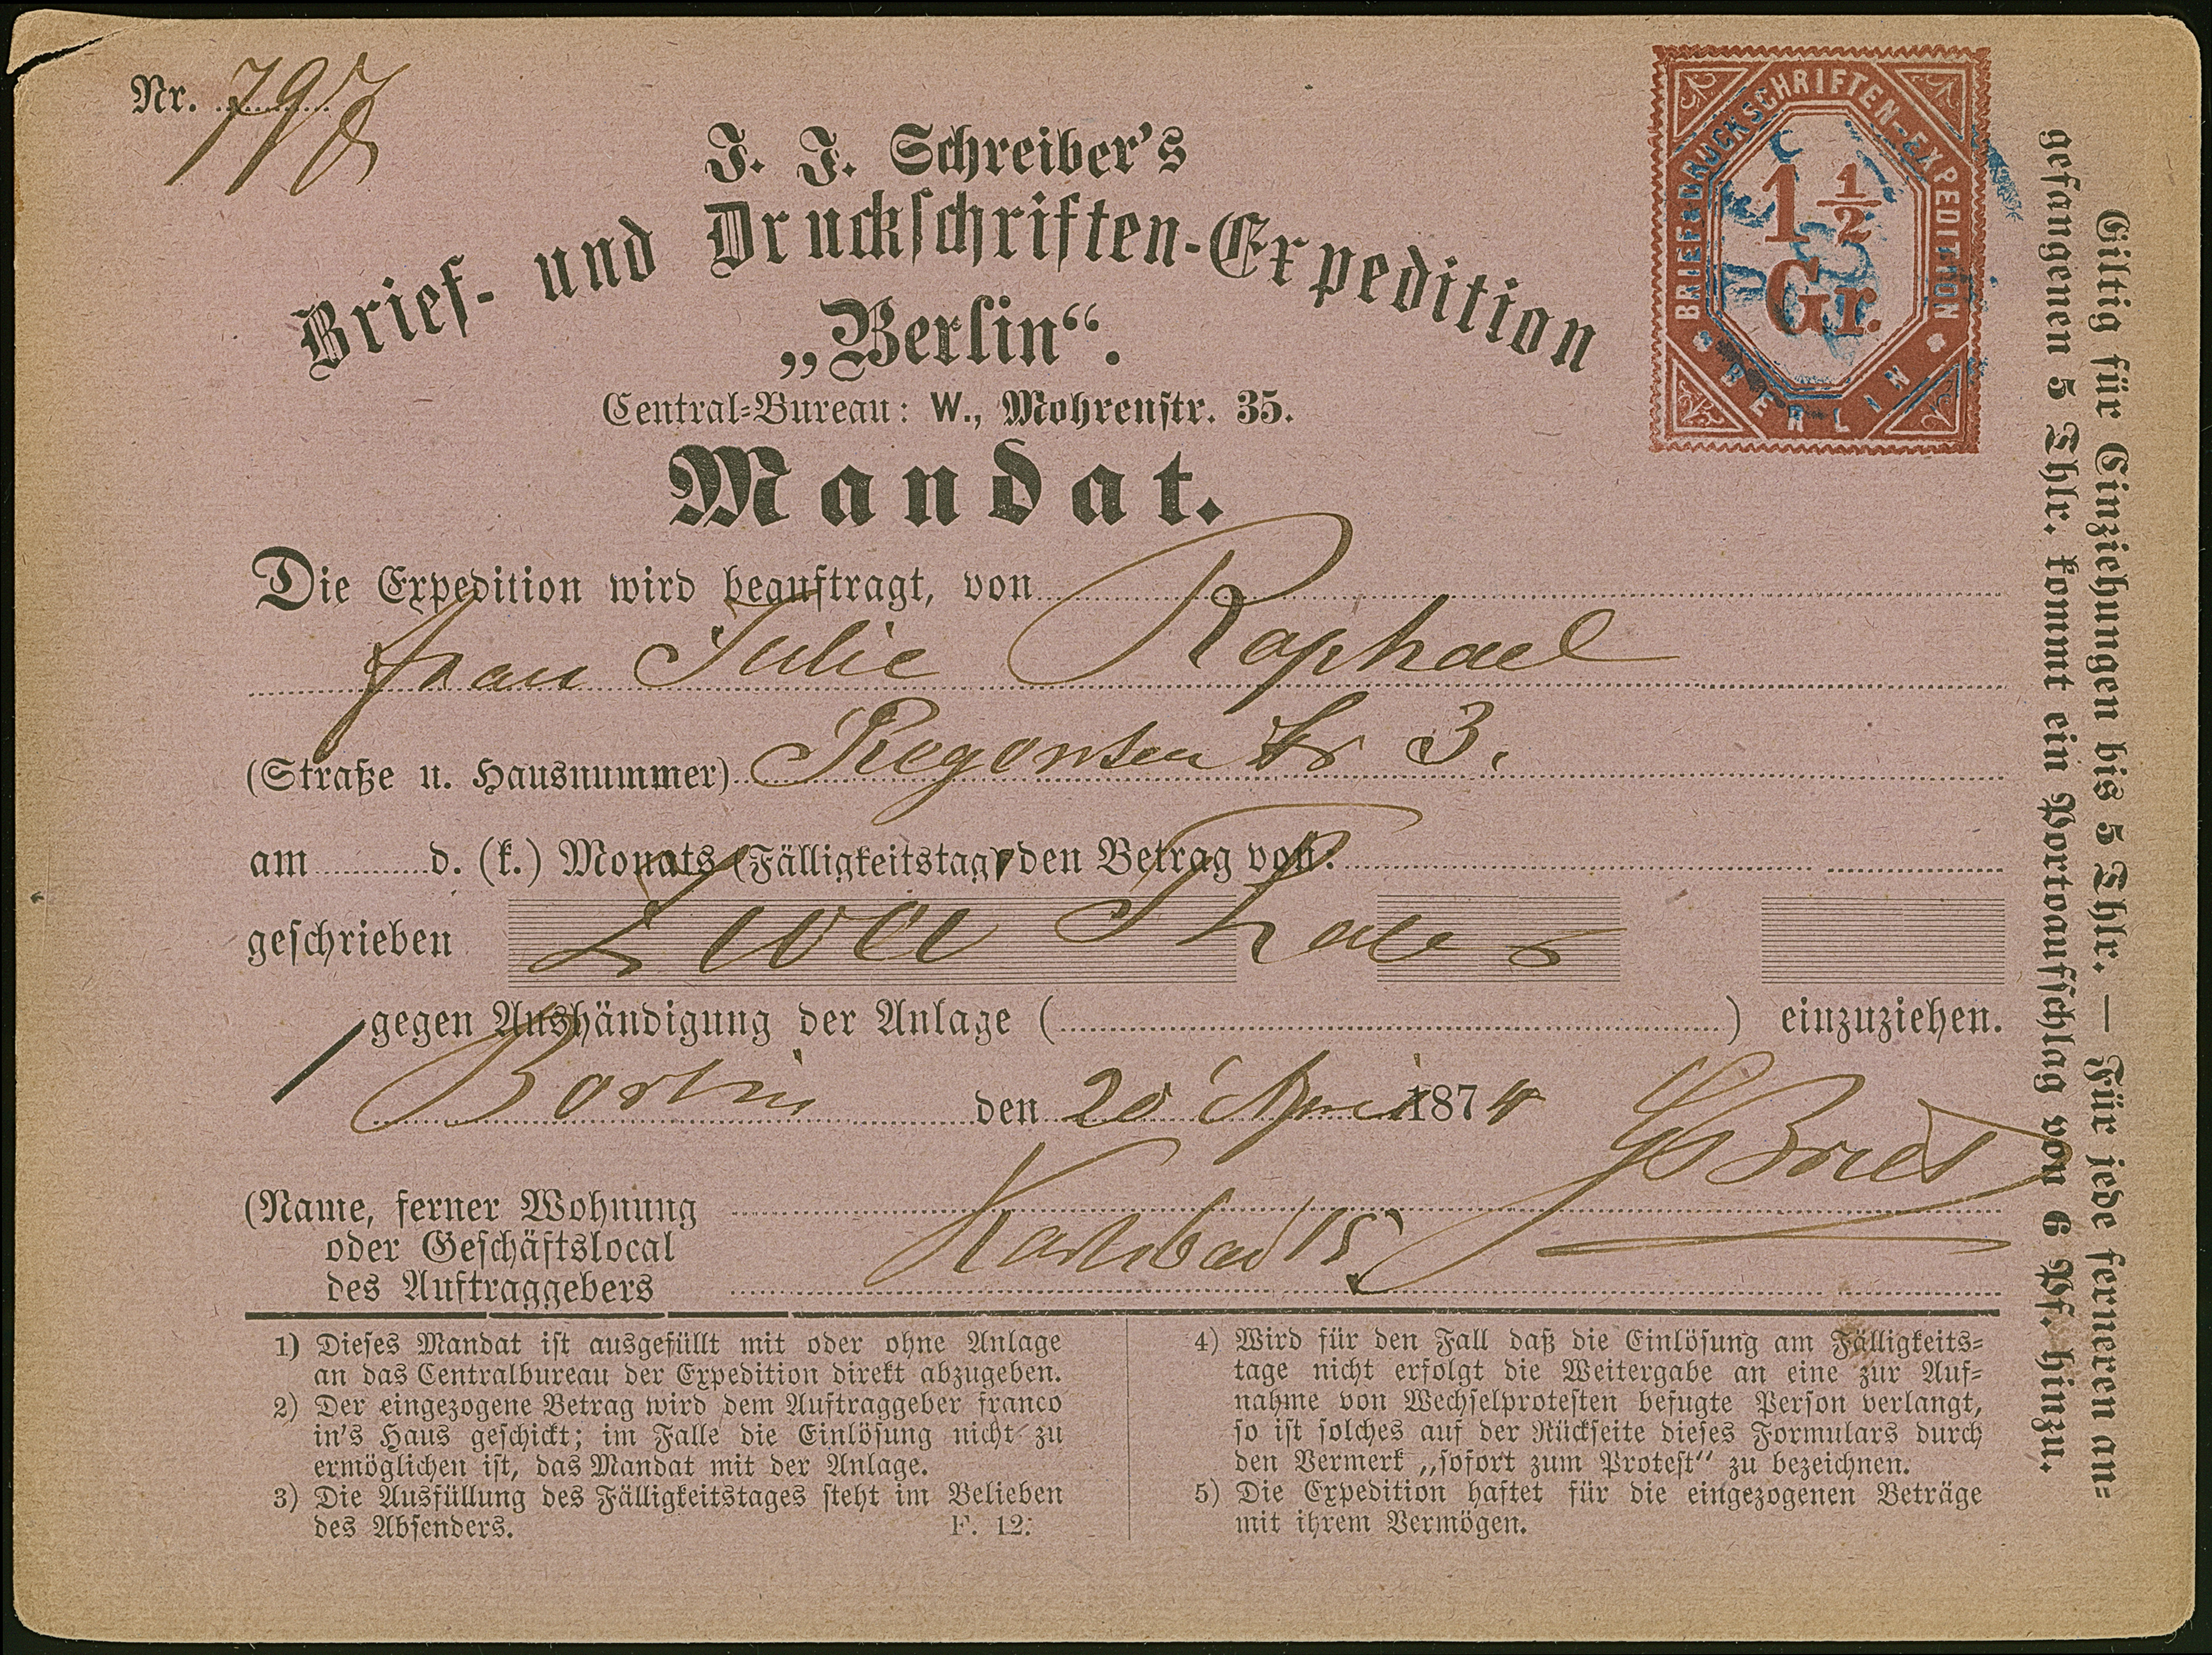 Nr. 798
J. J. Schreiber's
Brief- und Druckschriften-Expedition
„Berlin“.
Central-Bureau: W., Mohrenstr. 35.
Mandat.
BRIEF & DRUCKSCHRIFTEN-EXPEDITION
1 1/2
Gr.
BERLIN
Die Expedition wird beauftragt, von
Frau Julie Raphael
(Straße u. Hausnummer) str 3.
am d. (k.) Monats (Fälligkeitstag) den Betrag von:
geschrieben Zwei Thaler
gegen Aushändigung der Anlage ( ) einzuziehen.
Berlin den 20 April 1874
(Name, ferner Wohnung
oder Geschäftslocal
des Auftraggebers
Karlsbad 15
1) Dieses Mandat ist ausgefüllt mit oder ohne Anlage
an das Centralbureau der Expedition direkt abzugeben.
2) Der eingezogene Betrag wird dem Auftraggeber franco
in's Haus geschickt; im Falle die Einlösung nicht zu
ermöglichen ist, das Mandat mit der Anlage.
3) Die Ausfüllung des Fälligkeitstages steht im Belieben
des Absenders. F. 12.
4) Wird für den Fall daß die Einlösung am Fälligkeits-
tage nicht erfolgt die Weitergabe an eine zur Auf-
nahme von Wechselprotesten befugte Person verlangt,
so ist solches auf der Rückseite dieses Formulars durch
den Vermerk „sofort zum Protest“ zu bezeichnen.
5) Die Expedition haftet für die eingezogenen Beträge
mit ihrem Vermögen.
Giltig für Einziehungen bis 5 Thlr. — Für jede ferneren an-
gefangenen 5 Thlr. kommt ein Portoaufschlag von 6 Pf. hinzu.